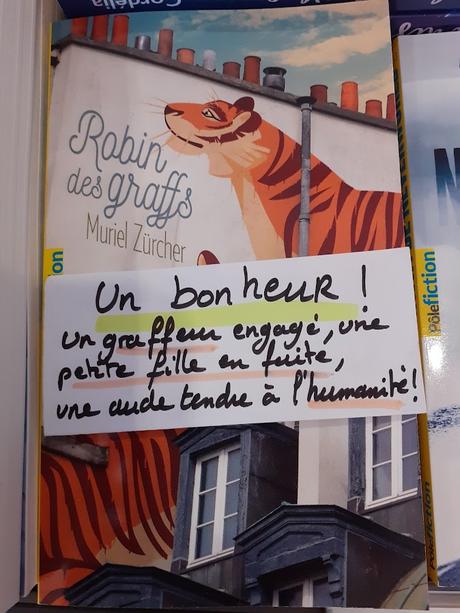 Cordélia
Robin
des graffs
Muriel Zürcher
Un bonheur !
Un graffeur engagé, une
petite fille en fuite,
une aude tendre à l'humanité !
Pôlefiction
fiction